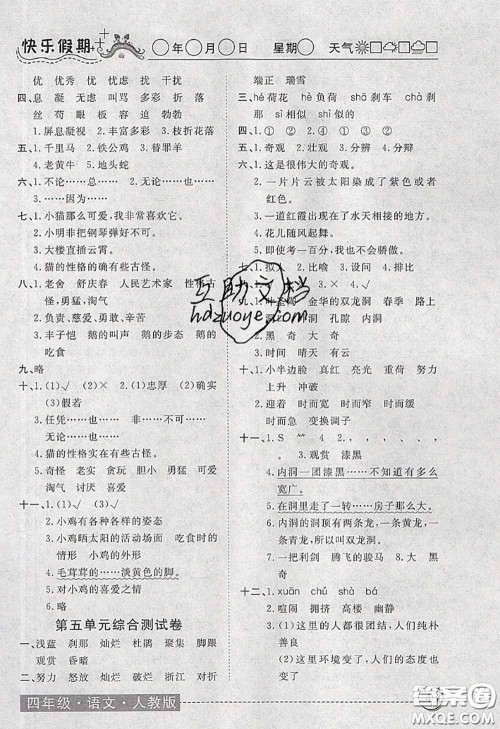 快乐假期
年 月 日 星期 天气
优 优秀 优 忧虑 扰 干扰
四、息 凝 无虑 叫骂 多彩 折 落
丝 荀 眼 板 为难
1.屏息凝视 2.丰富多彩 3.枝折花落
五、1.千里马 2.铁公鸡 3.替罪羊
4.老黄牛 5.地头蛇
六、1.不论……总…… 2.无论……也……
3.……因为……
七、1.小猫那么可爱,我非常喜欢。
2.小明非把钢琴弹好不可。
3.大楼直插云霄。
4.猫的性格的确有些古怪。
八、1.老舍 舒庆春 人民艺术家 性格古怪,勇猛,淘气
2.负责、慈爱、勇敢、辛苦
3.丰子恺 鹅的叫声 鹅的步态 鹅的吃食
九、略
十、1.(1)√ (2)× 2.(1)忠厚 (2)确实
(3)假若
3.任凭……也…… 非……不可……
无论……也……
4.猫的性格实在有些古怪。
5.奇怪 老实 贪玩 胆小 勇猛 可爱
淘气 讨厌 喜爱
十一、1.(1)× (2)× (3)√
2.小鸡有各种各样的姿态
3.小鸡晒太阳的活动场面 吃食时的情形 小鸡的外形
4.毛茸茸的……淡黄色的脚。
5.对小鸡的喜爱之情
6.略
第五单元综合测试卷
一、浅蓝 刹那 灿烂 杜鹃 聚集 脚跟
观赏 昏暗
二、努力 怒气 灿烂 破碎 浙江 对折
端正 瑞雪
三、hé荷花 hè负荷 shā刹车 chà刹那 sì相似 shì似的
四、① ② ④ ① ③ ②
五、1.奇观 2.壮观 3.分辨 4.分辩
六、1.这是很伟大的奇观。
2.一片片云被太阳染成了紫色的或者红色的。
3.一道红霞出现在了水天相接的地方。
4.花儿随风起舞。
5.即使考一百分,我也不骄傲。
七、1.拟人
3.时间 晴天 有云
十、1.小半边脸 真红 亮光 重荷 努力
上升 冲破
2.迎着 时而宽 时而窄 时而缓
时而急 变换调子
3.观赏 漆黑
4.内洞一团漆黑……不知道有多么宽广。
5.在洞里走了一转……房子那么大。
6.内洞的洞顶有两条龙,一条黄龙,一条青龙。所以叫双龙洞。
7.一把利剑 腾飞的骏马
8.(1)× (2)× (3)√
十二、1.xuān chǔ jì
2.喧闹 拥挤 高楼 美丽 幸福
3.(1)这里的人都很团结 人们也都很快乐
(2)这里环境变了 人们的生活也变了
四年级·语文·人教版
互助文档
hdzuoye.com
答案圈
MXQE.COM